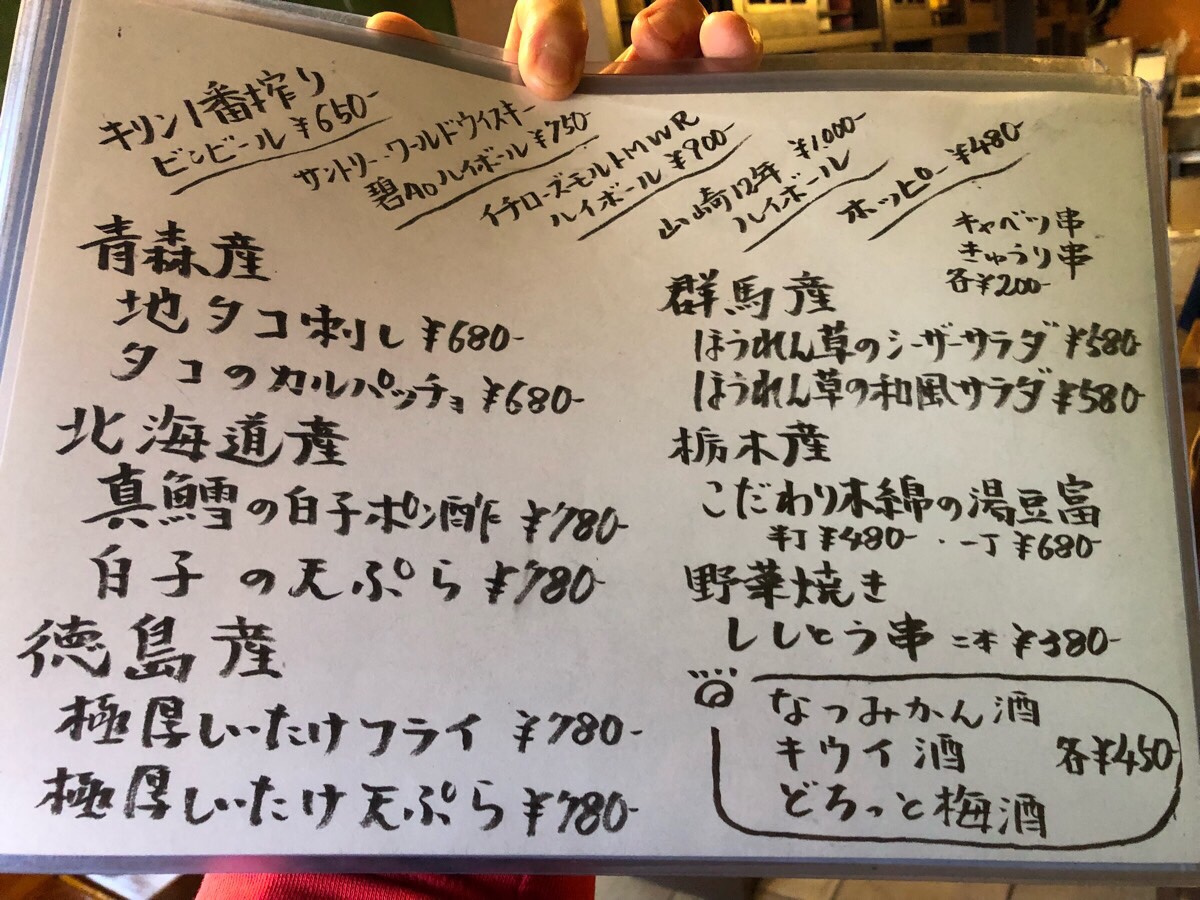 キリン1番搾り
ビンビール ¥650-
サントリー・ワールドウイスキー
碧Aoハイボール ¥750-
イチローズモルトMWR
ハイボール ¥900-
山崎12年 ¥1000-
ハイボール
ホッピー ¥480-
キャベツ串
きゅうり串
各¥200-
青森産
地タコ刺し ¥680-
タコのカルパッチョ ¥680-
北海道産
真鱈の白子ポン酢 ¥780-
白子の天ぷら ¥780-
徳島産
極厚しいたけフライ ¥780-
極厚しいたけ天ぷら ¥780-
群馬産
ほうれん草のシーザーサラダ ¥580-
ほうれん草の和風サラダ ¥580-
栃木産
こだわり木綿の湯豆富
半丁 ¥480- ・一丁 ¥680-
野菜焼き
ししとう串 二本 ¥380-
なつみかん酒
キウイ酒 各¥450-
どろっと梅酒